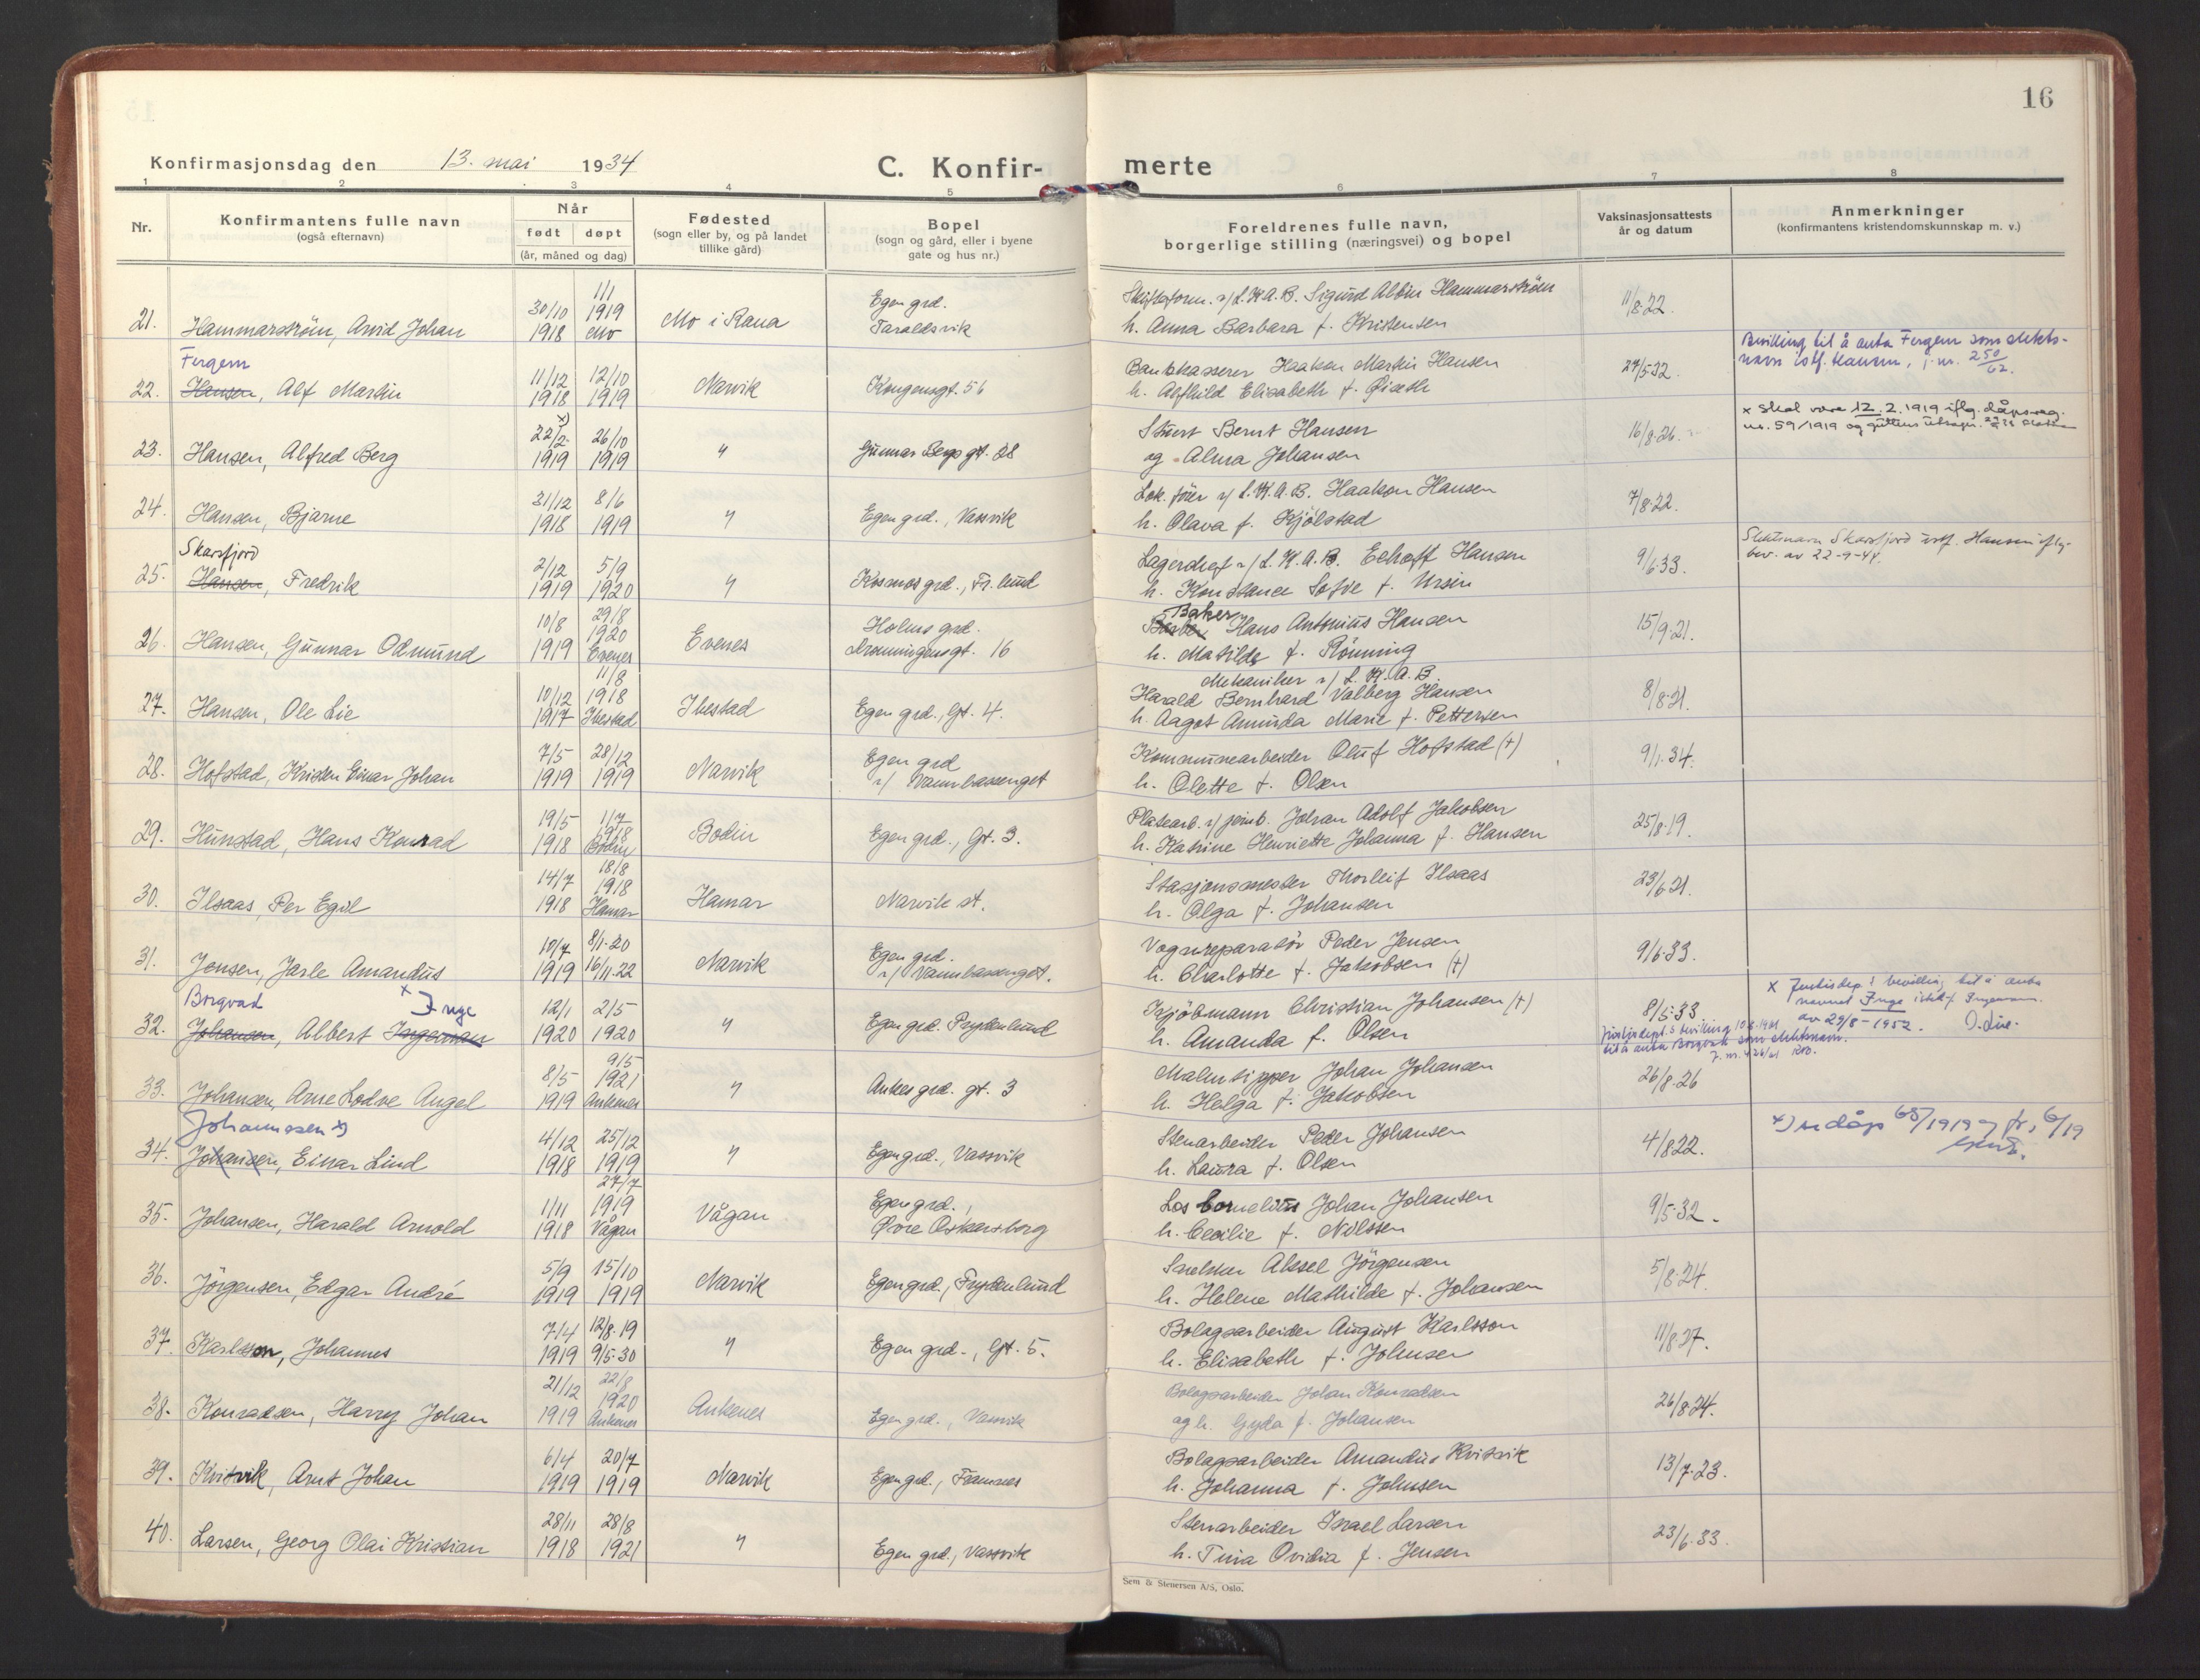 16
Konfirmasjonsdag den 13. mai 1934
C. Konfir-merte
1 2 3 4 5 6 7 8
Nr.
Konfirmantens fulle navn
(også efternavn)
Når
født døpt
(år, måned og dag)
Fødested
(sogn eller by, og på landet
tillike gård)
Bopel
(sogn og gård, eller i byene
gate og hus nr.)
Foreldrenes fulle navn,
borgerlige stilling (næringsvei) og bopel
Vaksinasjonsattests
år og datum
Anmerkninger
(konfirmantens kristendomskunnskap m. v.)
21. Hammarström, Arvid Johan 30/10 1918 1/1 1919 Mo Mo i Rana Egen grd. Taraldsvik
Skifteform. v/ L.K.A.B. Sigurd Albin Hammarström
h. Anna Barbara f. Kristensen 11/8.22.
Fergem
22. Hansen, Alf Martin 11/12 1918 12/10 1919 Narvik Kongensgt. 56
Bankkasserer Haakon Martin Hansen
h. Alfhild Elisabeth f. 24/5.32.
Bevilling til å anta Fergem som slekts-
navn istf. Hansen, j.nr. 250/62.
23. Hansen, Alfred Berg x) 22/2. 1919 26/10 1919 " Gunnar Bergs gt. 28
Stuert Bernt Hansen
og Alma Johansen 16/8.26.
x skal være 12.2.1919 iflg. dåpsreg.
nr. 59/1919 og guttens utsagn.
24. Hansen, Bjarne 31/12 1918 8/6 1919 " Egen grd., Vassvik
Lok. fører v/ L.K.A.B. Haakon Hansen
h. Olava f. Kjølstad 7/8.22.
Skarsfjord
25. Hansen, Fredrik 2/12 1919 5/9 1920 " Kosmos grd., Fr.lund
Lagerchef v/ L.K.A.B. Eehoff Hansen
h. Konstance Sofie f. Ursin 9/6.33.
Slektsnavn Skarsfjord istf. Hansen iflg.
bev. av 22-9-44.
26. Hansen, Gunnar Odmund 10/8 1919 29/8 1920 Evenes Evenes Holms grd. Dronningensgt. 16
Baker Hans Antonius Hansen
h. Matilde f. Rönning 15/9.21.
27. Hansen, Ole Lie 10/12 1917 11/8 1918 Ibestad Ibestad Egen grd., Gt. 4.
Mekaniker v/ L.K.A.B.
Harald Bernhard Valberg Hansen
h. Aagot Aminda Marie f. Pettersen 8/8.21.
28. Hofstad, Kristen Einar Johan 7/5 1919 28/12 1919 Narvik Egen grd v/ Vannbassenget
Kommunearbeider Oluf Hofstad (+)
h. Olette f. Olsen 9/1.34.
29. Hunstad, Hans Konrad 19/5 1918 1/7 1918 Bodin Bodin Egen grd., Gt. 3.
Platearb. v/ jernb. Johan Adolf Jakobsen
h. Katrine Henriette Johanna f. Hansen 25/8.19.
30. Ilsaas, Per Egil 14/7 1918 18/8 1918 Hamar Hamar Narvik st.
Stasjonsmester Thorleif Ilsaas
h. Olga f. Johansen 23/6.21.
31. Jensen, Jarle Amandus 10/7 1919 8/1.20 16/11.22 Narvik Egen grd. v/ Vannbassenget.
Vognreparatør Peder Jensen
h. Charlotte f. Jakobsen (+) 9/6.33.
Borgvad x Inge
32. Johansen, Albert Ingeman 12/1 1920 2/5 1920 " Egen grd. Frydenlund
Kjöbmann Christian Johansen (+)
h. Amanda f. Olsen 8/5.33
x Justisdep.s bevilling til å anta
navnet Inge istf. Ingeman.
av 29/8-1952. O. Lie.
Justisdept.s bevilling 10.8.1961
til å anta Borgvad som slektsnavn.
33. Johansen, Arne Lodve Angel 8/5 1919 9/5 1921 Ankenes " Ankes grd. gt. 3
Malmtipper Johan Johansen
h. Helga f. Jakobsen 26/8.26
Johannesen x)
34. Johansen, Einar Lind 4/12 1918 25/12 1919 " Egen grd., Vassvik
Stenarbeider Peder Johansen
h. Laura f. Olsen 4/8 22.
x) se dåp 68/1919 og fr. 6/19
35. Johansen, Harald Arnold 1/11 1918 27/7 1919 Vågan Vågan Egen grd., Øvre Oskarsborg
Los Cornelius Johan Johansen
h. Cecilie f. Nilssen 9/5.32.
36. Jörgensen, Edgar André 5/9 1919 15/10 1919 Narvik Egen grd., Frydenlund
Snekker Aksel Jörgensen
h. Helene Mathilde f. Johansen 5/8.24.
37. Karlsson, Johannes 7/4 1919 12/8.19 9/5.30 " Egen grd., Gt. 5.
Bolagsarbeider August Karlsson
h. Elisabeth f. Johnsen 11/8.27.
38. Konradsen, Harry Johan 21/12 1919 22/8 1920 Ankenes Ankenes Egen grd., Vassvik
Bolagsarbeider Johan Konradsen
og h. Gyda f. Johansen 26/8.24.
39. Kvitvik, Arnt Johan 6/4 1919 20/7 1919 Narvik Egen grd., Framnes
Bolagsarbeider Amandus Kvitvik
h. Johanna f. Johnsen 13/7.23.
40. Larsen, Georg Olai Kristian 28/11 1918 28/8 1921 " Egen grd., Vassvik
Stenarbeider Israel Larsen
h. Tina Ovidia f. Jensen 23/6.33.
Sem & Stenersen A/S, Oslo.